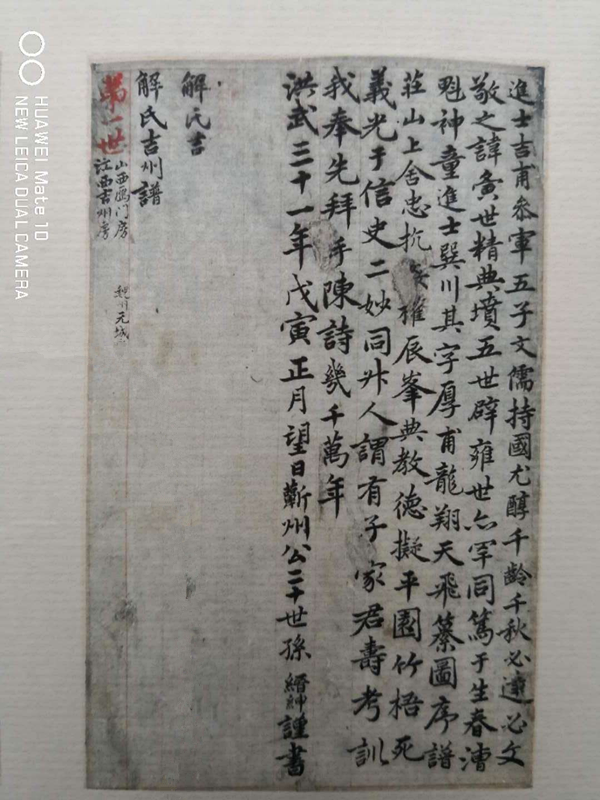 進士吉甫參軍五子文儒持國尤醇千齡千秋必達必文
敬之諱賁世精典墳五世辟雍世亦罕同篤于生春漕
魁神童進士巽川其字厚甫龍翔天飛纂圖序譜
莊山上舍忠抗 推辰峯典教德擬平園竹梧死
義光于信史二妙同升人謂有子家君壽考訓
我奉先拜手陳詩幾千萬年
洪武三十一年戊寅正月望日蘄州公二十世孫縉紳謹書
解氏吉
解氏吉州譜
第一世
山西鴈門房
江西吉州房
元城
HUAWEI Mate 10
NEW LEICA DUAL CAMERA